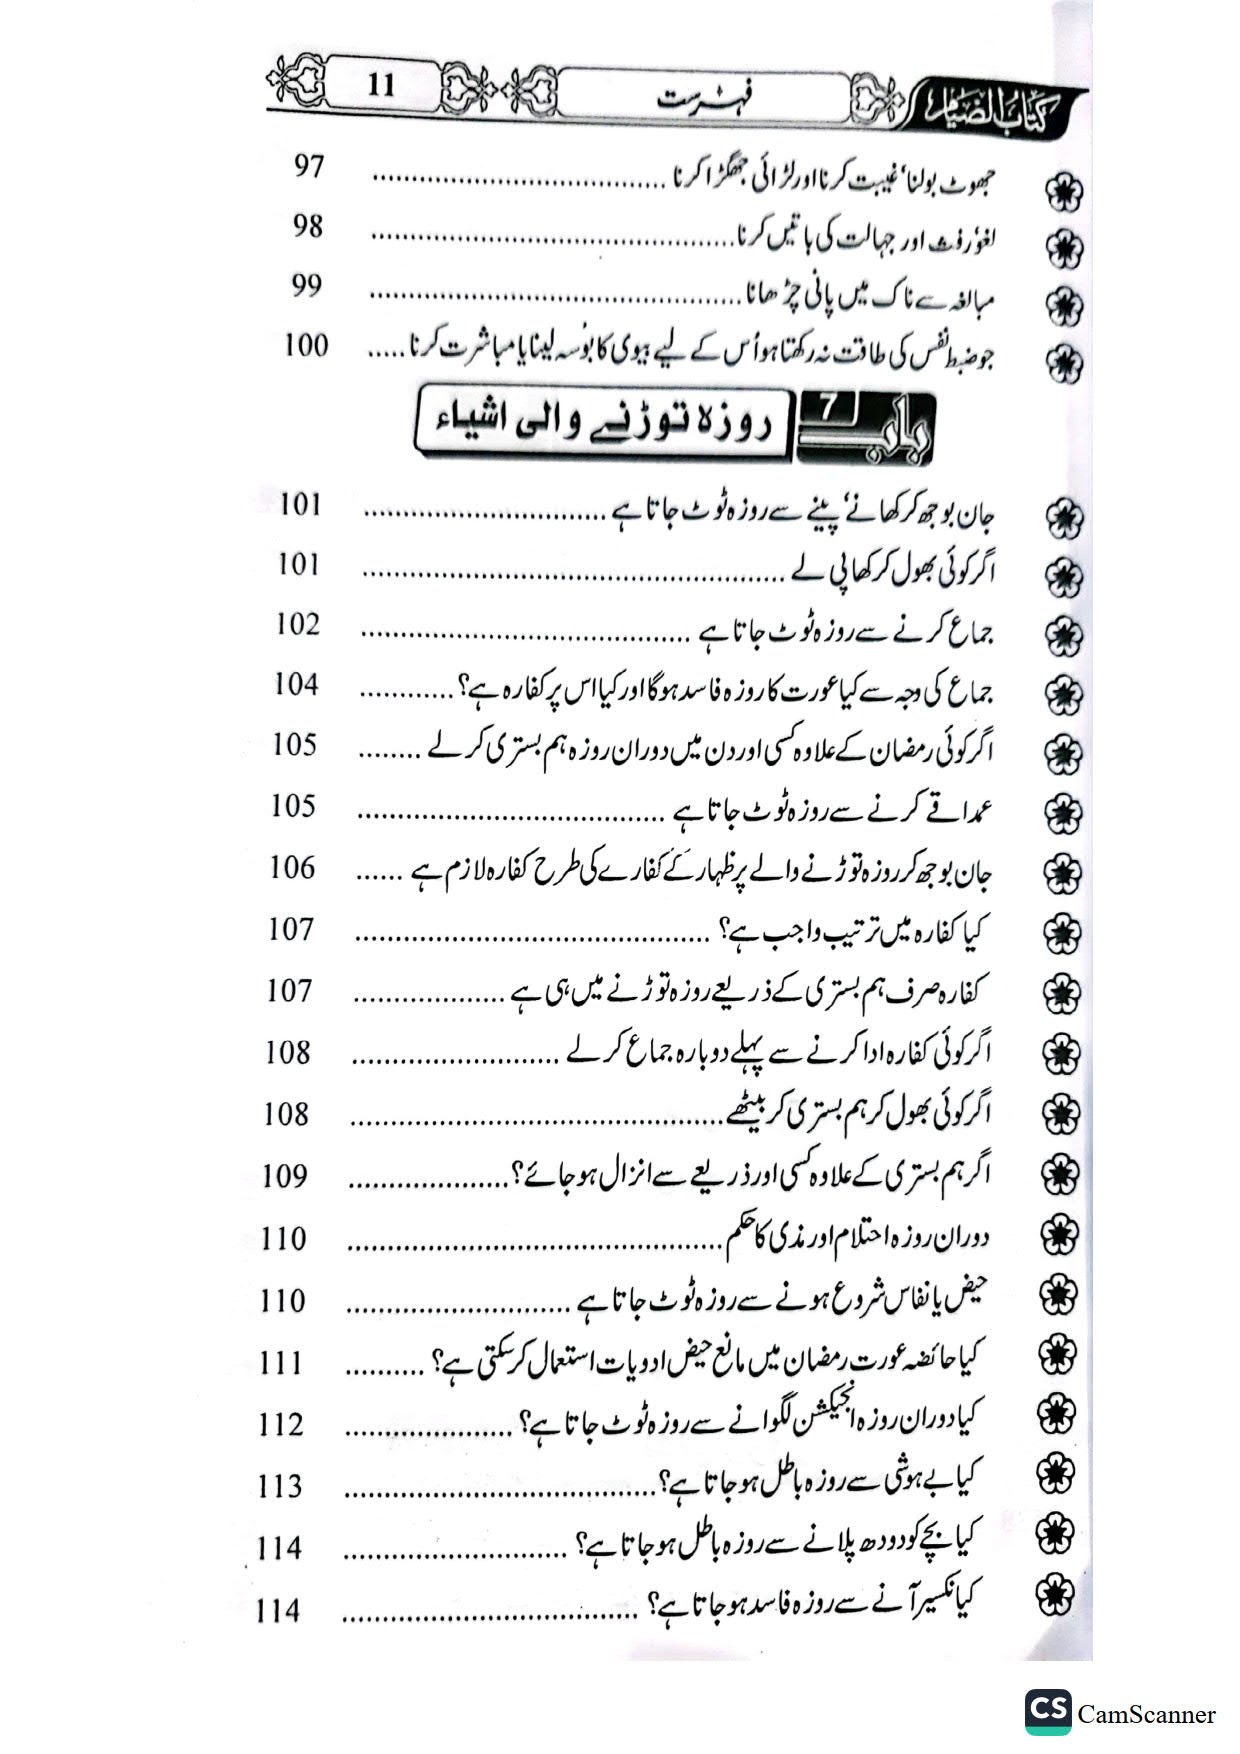 كتاب الصيام فہرست 11
جھوٹ بولنا، غیبت کرنا اور لڑائی جھگڑا کرنا ........ 97
لغو، رفث اور جہالت کی باتیں کرنا ........ 98
مبالغہ سے ناک میں پانی چڑھانا ........ 99
جو ضبط نفس کی طاقت نہ رکھتا ہو اُس کے لیے بیوی کا بوسہ لینا یا مباشرت کرنا ..... 100
باب 7 روزہ توڑنے والی اشیاء
جان بوجھ کر کھانے، پینے سے روزہ ٹوٹ جاتا ہے ........ 101
اگر کوئی بھول کر کھا پی لے ........ 101
جماع کرنے سے روزہ ٹوٹ جاتا ہے ........ 102
جماع کی وجہ سے کیا عورت کا روزہ فاسد ہوگا اور کیا اس پر کفارہ ہے؟ ........ 104
اگر کوئی رمضان کے علاوہ کسی اور دن میں دوران روزہ ہم بستری کر لے ........ 105
عمدا قے کرنے سے روزہ ٹوٹ جاتا ہے ........ 105
جان بوجھ کر روزہ توڑنے والے پر ظہار کے کفارے کی طرح کفارہ لازم ہے ...... 106
کیا کفارہ میں ترتیب واجب ہے؟ ........ 107
کفارہ صرف ہم بستری کے ذریعے روزہ توڑنے میں ہی ہے ........ 107
اگر کوئی کفارہ ادا کرنے سے پہلے دوبارہ جماع کر لے ........ 108
اگر کوئی بھول کر ہم بستری کر بیٹھے ........ 108
اگر ہم بستری کے علاوہ کسی اور ذریعے سے انزال ہو جائے؟ ........ 109
دوران روزہ احتلام اور مذی کا حکم ........ 110
حیض یا نفاس شروع ہونے سے روزہ ٹوٹ جاتا ہے ........ 110
کیا حائضہ عورت رمضان میں مانع حیض ادویات استعمال کر سکتی ہے؟ ........ 111
کیا دوران روزہ انجیکشن لگوانے سے روزہ ٹوٹ جاتا ہے؟ ........ 112
کیا بے ہوشی سے روزہ باطل ہو جاتا ہے؟ ........ 113
کیا بچے کو دودھ پلانے سے روزہ باطل ہو جاتا ہے؟ ........ 114
کیا نکسیر آنے سے روزہ فاسد ہو جاتا ہے؟ ........ 114
CS CamScanner